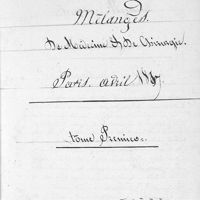 Mélanges.
De Médecine & De Chirurgie.
Paris. avril 1867.
tome Premier.